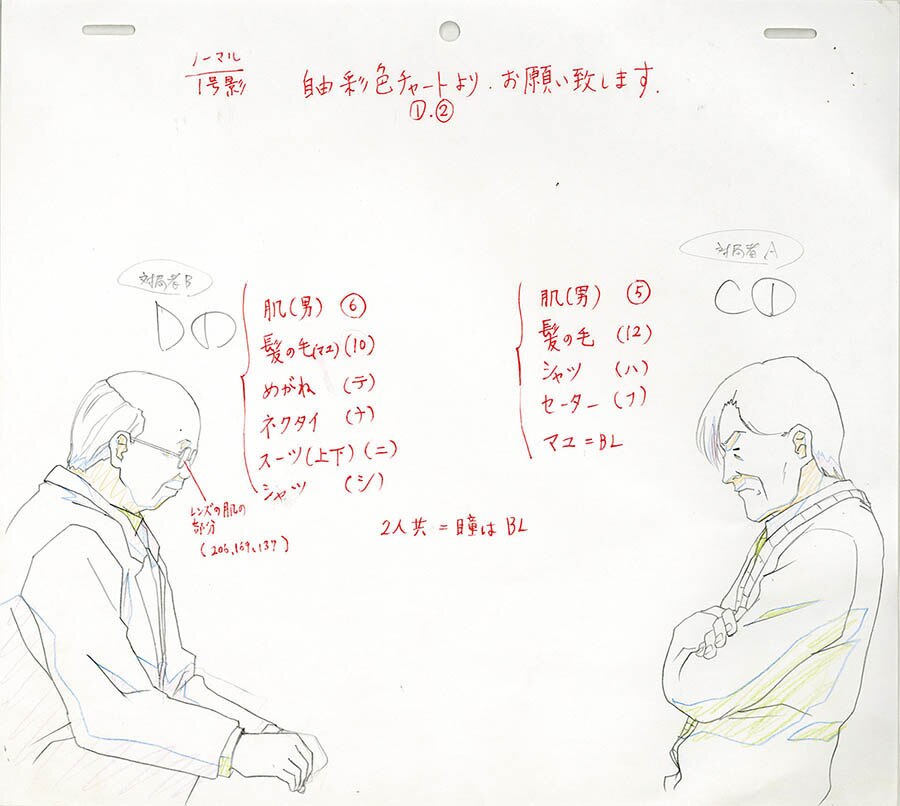 ノーマル
1号影
自由彩色チャートより、お願い致します.
①.②
対局者B
D①
肌(男) ⑥
髪の毛(マユ)(10)
めがね (テ)
ネクタイ (ナ)
スーツ(上下)(ニ)
シャツ (シ)
レンズの肌の
部分
(206,169,137)
対局者A
C①
肌(男) ⑤
髪の毛 (12)
シャツ (ハ)
セーター (フ)
マユ=BL
2人共=瞳はBL